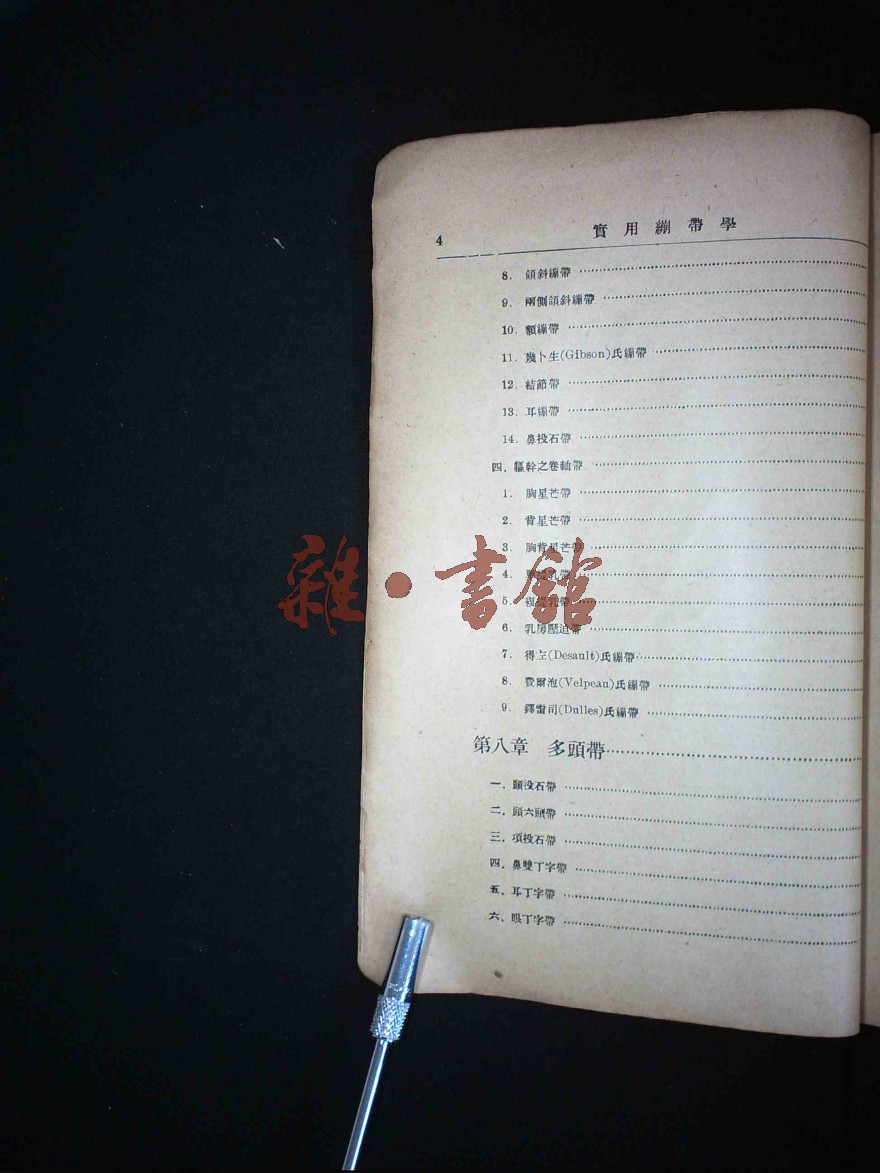 4 實用繃帶學
8. 頷斜繃帶
9. 兩側頷斜繃帶
10. 額繃帶
11. 幾卜生(Gibson)氏繃帶
12. 結節帶
13. 耳繃帶
14. 鼻投石帶
四. 軀幹之卷軸帶
1. 胸星芒帶
2. 背星芒帶
3. 胸背星芒帶
4. 乳帶
5. 複提乳帶
6. 乳房壓迫帶
7. 得左(Desault)氏繃帶
8. 費爾泡(Velpeau)氏繃帶
9. 鐸雷司(Dulles)氏繃帶
第八章 多頭帶
一. 頭投石帶
二. 頭六頭帶
三. 項投石帶
四. 鼻雙丁字帶
五. 耳丁字帶
六. 眼丁字帶
雜·書館